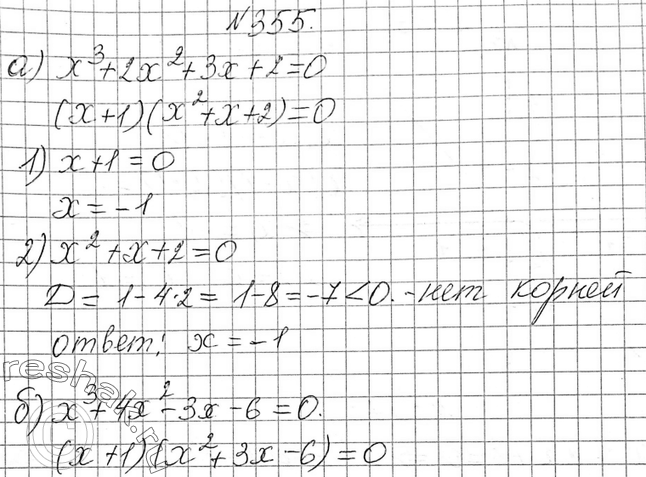 №355.
а) x³+2x²+3x+2=0
(x+1)(x²+x+2)=0
1) x+1=0
x=-1
2) x²+x+2=0
D = 1-4·2= 1-8=-7<0. -нет корней
ответ: x=-1
reshak.ru
б) x³+4x²-3x-6=0.
(x+1)(x²+3x-6)=0